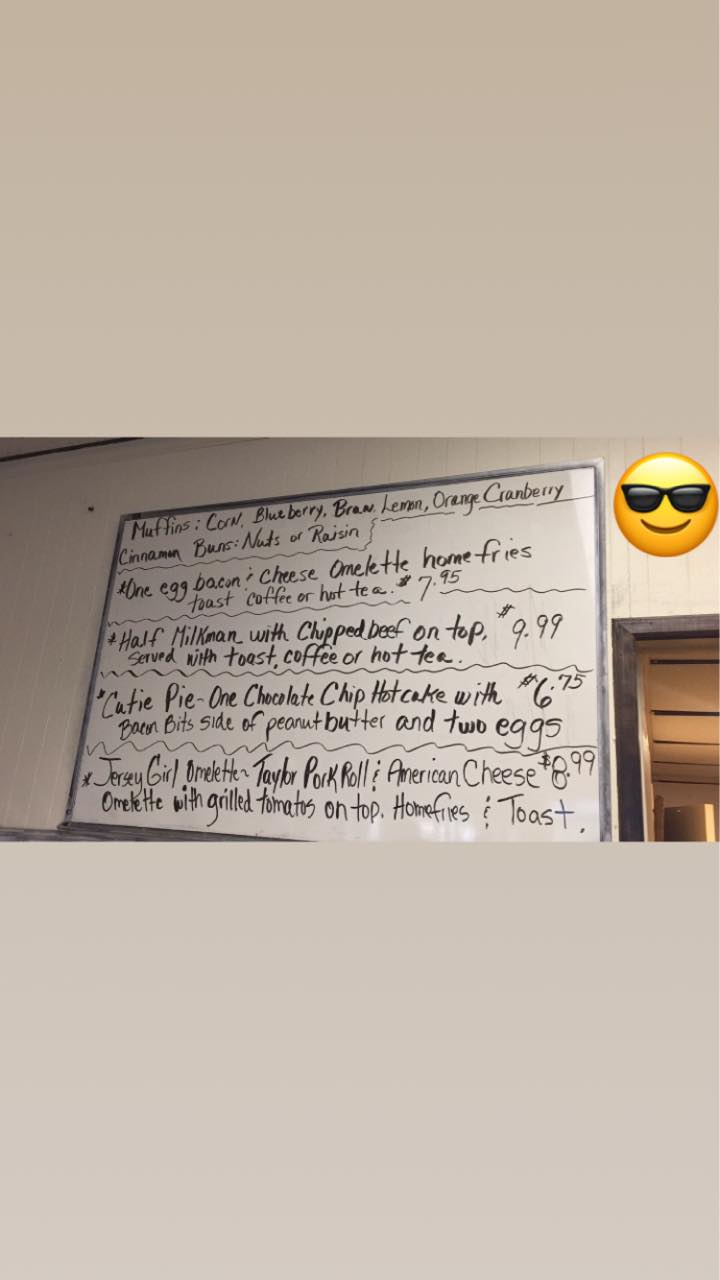 Muffins: Corn, Blueberry, Bran, Lemon, Orange Cranberry
Cinnamon Buns: Nuts or Raisin
*One egg bacon & Cheese Omelette homefries
toast coffee or hot tea. $7.95
*Half Milkman with Chipped beef on top. $9.99
Served with toast, coffee or hot tea.
*Cutie Pie~One Chocolate Chip Hotcake with $6.75
Bacon Bits side of peanut butter and two eggs
*Jersey Girl Omelette~Taylor Pork Roll & American Cheese $8.99
Omelette with grilled tomatos on top. Homefries & Toast.